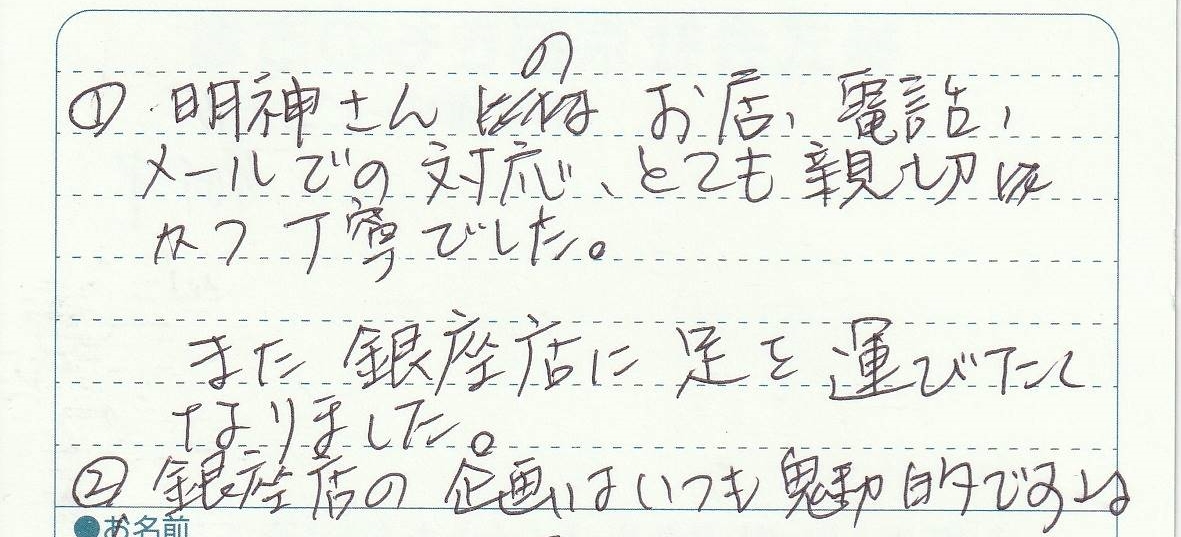 ① 明神さんのお店、電話、
メールでの対応、とても親切に
かつ丁寧でした。
また銀座店に足を運びたく
なりました。
② 銀座店の企画はいつも魅力的ですよね
●お名前